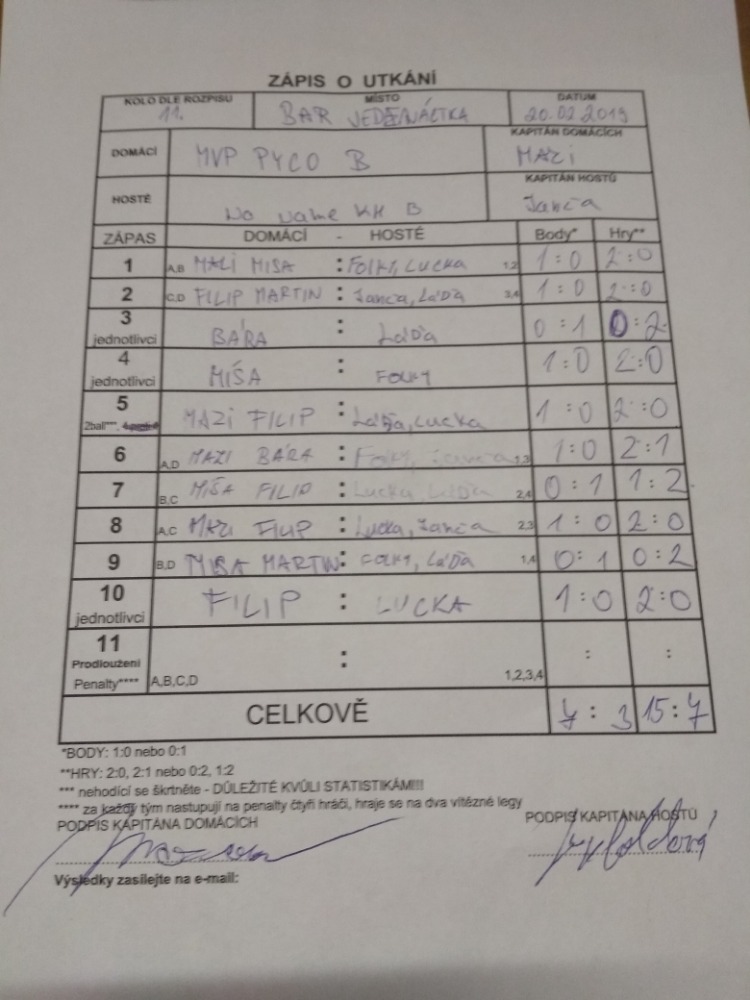 ZÁPIS O UTKÁNÍ
KOLO DLE ROZPISU MÍSTO DATUM
11. BAR JEDENÁCTKA 20.02.2019
DOMÁCÍ MVP PYCO B KAPITÁN DOMÁCÍCH
MAZI
HOSTÉ No name KH B KAPITÁN HOSTŮ
Janča
ZÁPAS DOMÁCÍ - HOSTÉ Body* Hry**
1 A,B MAZI MISA : FOLKY, LUCKA 1,2 1:0 2:0
2 C,D FILIP MARTIN : Janča, Láďa 3,4 1:0 2:0
3 jednotlivci BÁRA : Láďa 0:1 0:2
4 jednotlivci MÍŠA : FOLKY 1:0 2:0
5 2ball***, MAZI FILIP : Láďa, Lucka 1:0 2:0
6 A,D MAZI BÁRA : Folky, Janča 1,3 1:0 2:1
7 B,C MÍŠA FILIP : Lucka, Láďa 2,4 0:1 1:2
8 A,C MAZI FILIP : Lucka, Janča 2,3 1:0 2:0
9 B,D MISA MARTIN : FOLKY, Láďa 1,4 0:1 0:2
10 jednotlivci FILIP : LUCKA 1:0 2:0
11 Prodloužení : : :
Penalty**** A,B,C,D 1,2,3,4
CELKOVĚ 7:3 15:7
*BODY: 1:0 nebo 0:1
**HRY: 2:0, 2:1 nebo 0:2, 1:2
*** nehodící se škrtněte - DŮLEŽITÉ KVŮLI STATISTIKÁM!!!
**** za každý tým nastupují na penalty čtyři hráči, hraje se na dva vítězné legy
PODPIS KAPITÁNA DOMÁCÍCH PODPIS KAPITÁNA HOSTŮ
Výsledky zasílejte na e-mail: